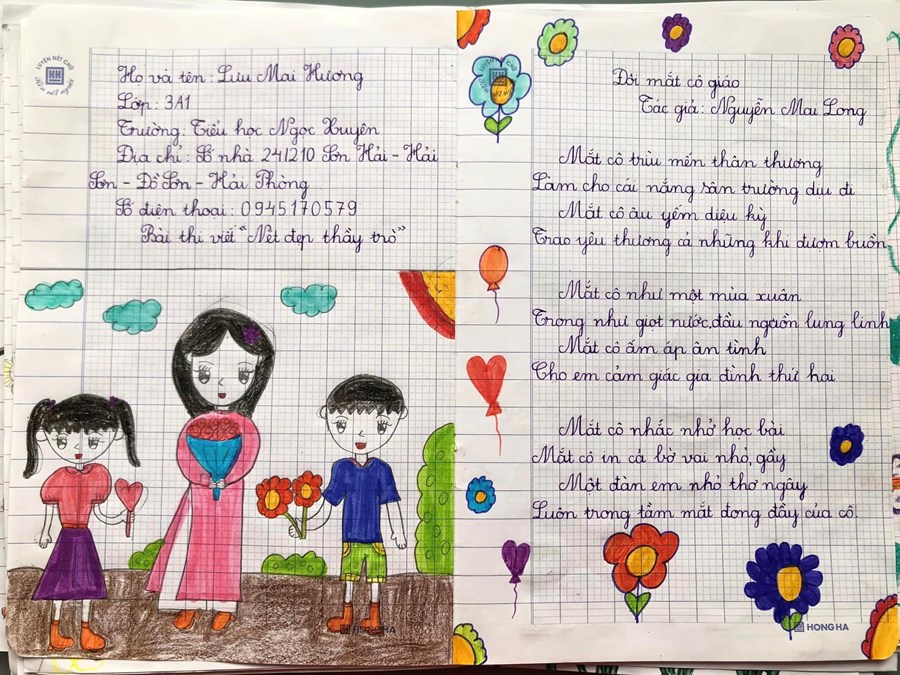 Họ và tên: Lưu Mai Hương
Lớp: 3A1
Trường: Tiểu học Ngọc Xuyên
Địa chỉ: Số nhà 241210 Sơn Hải - Hải
Sơn - Đồ Sơn - Hải Phòng
Số điện thoại: 0945170579
Bài thi viết "Nét đẹp thầy trò"
Đôi mắt cô giáo
Tác giả: Nguyễn Mai Long
Mắt cô trìu mến thân thương
Làm cho cái nắng sân trường dịu đi
Mắt cô âu yếm diệu kỳ
Trao yêu thương cả những khi đượm buồn
Mắt cô như một mùa xuân
Trong như giọt nước, đầu nguồn lung linh
Mắt cô ấm áp ân tình
Cho em cảm giác gia đình thứ hai
Mắt cô nhắc nhở học bài
Mắt cô in cả bờ vai nhỏ, gầy
Một đàn em nhỏ thơ ngây
Luôn trong tầm mắt đong đầy của cô.
HONG HA
HONG HA
LUYỆN NÉT CHỮ